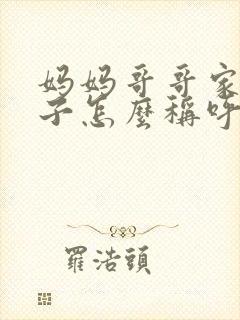 妈妈哥哥家
子怎麼稱呼
羅浩頭